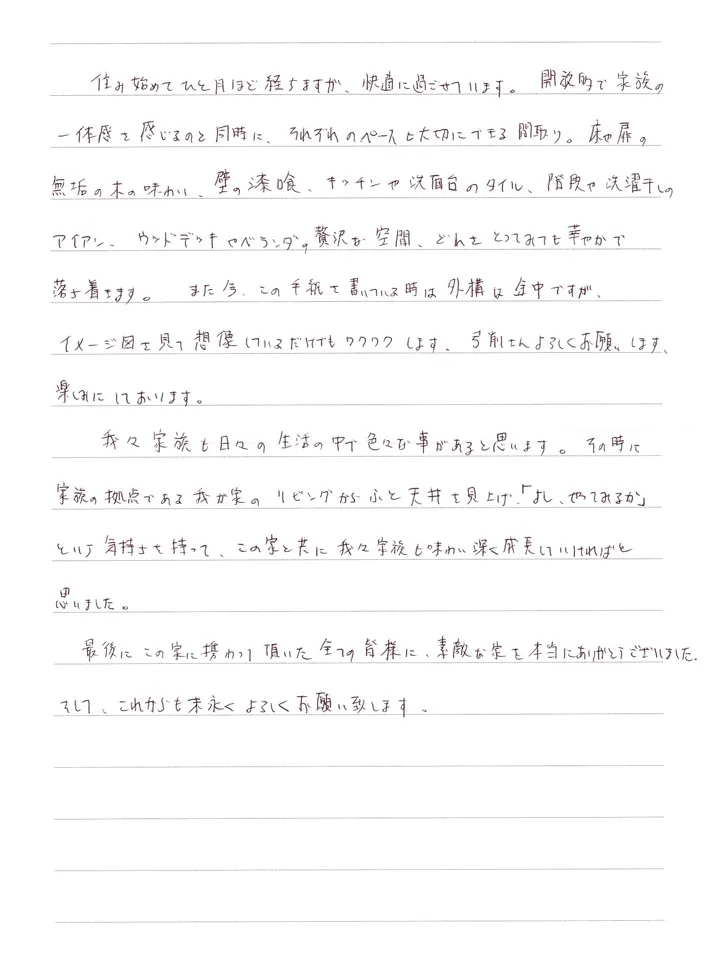 住み始めてひと月ほど経ちますが、快適に過ごせています。開放的で家族の
一体感を感じるのと同時に、それぞれのペースも大切にできる間取り。床や扉の
無垢の木の味わい、壁の漆喰、キッチンや洗面台のタイル、階段や洗濯干しの
アイアン、ウッドデッキやベランダの贅沢な空間、どれをとってみても華やかで
落ち着きます。また今、この手紙を書いている時は外構は途中ですが、
イメージ図を見て想像しているだけでもワクワクします。弓削さんよろしくお願いします、
楽しみにしております。
我々家族も日々の生活の中で色々な事があると思います。その時に
家族の拠点である我が家のリビングからふと天井を見上げ、「よし、やってみるか」
という気持ちを持って、この家と共に我々家族も味わい深く成長していければと
思いました。
最後にこの家に携わって頂いた全ての皆様に、素敵な家を本当にありがとうございました。
そして、これからも末永くよろしくお願い致します。